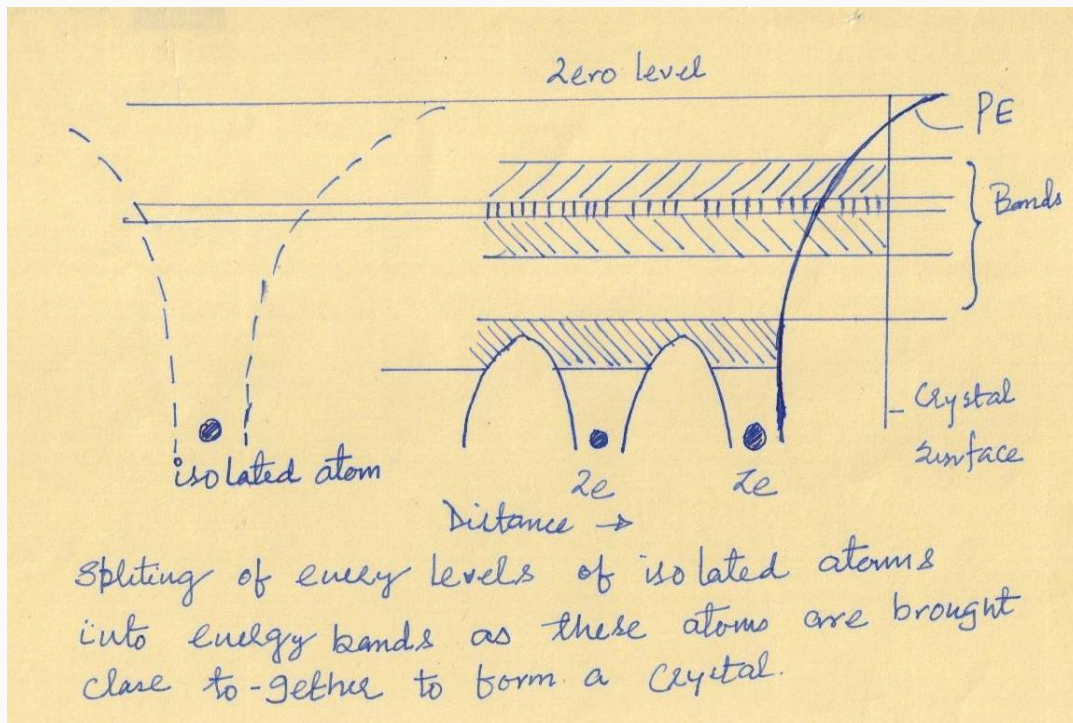 Zero level
PE
Bands
Crystal
surface
isolated atom
Ze
Ze
Distance →
Spliting of energy levels of isolated atoms
into energy bands as these atoms are brought
close to-gether to form a Crystal.